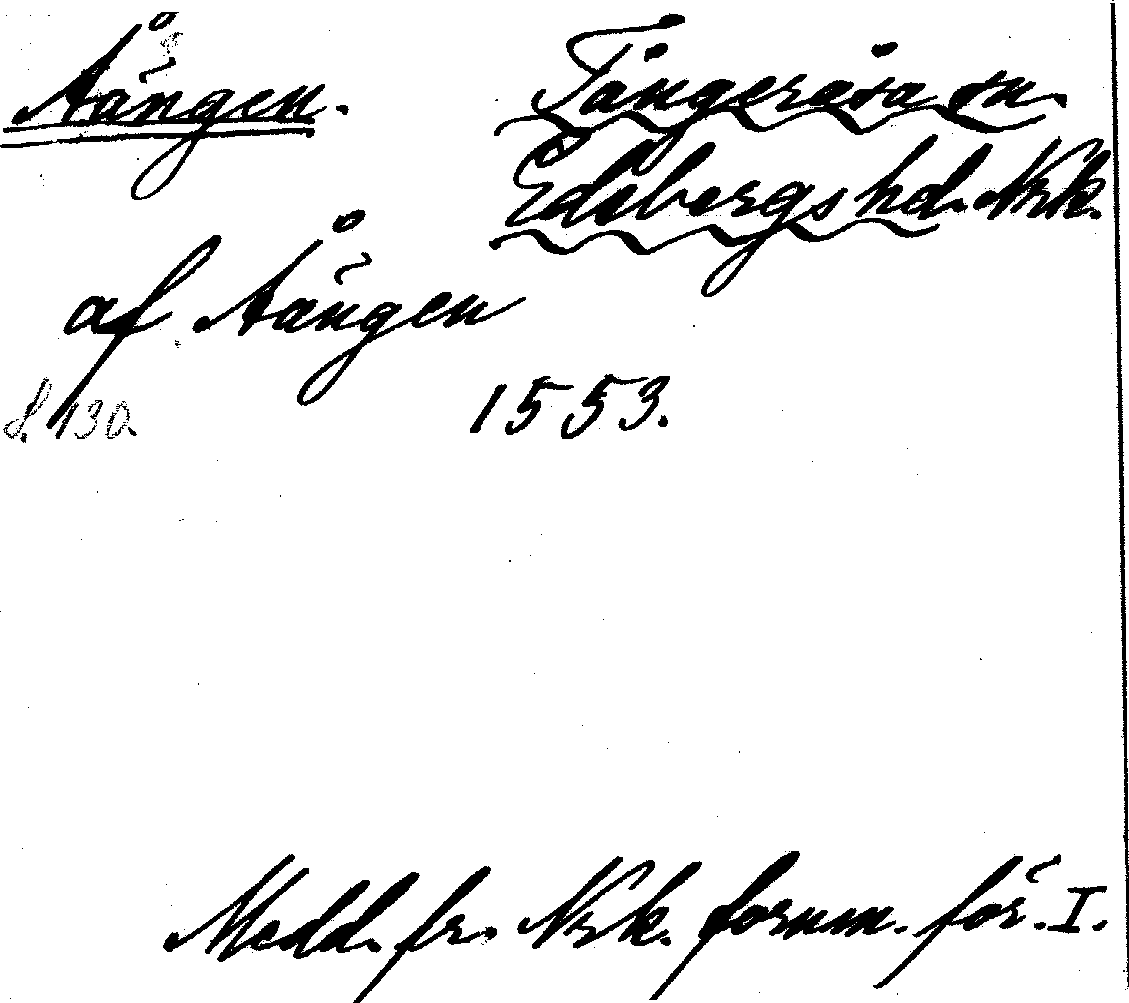 Åängen. Tångeråsa sn.
Edsbergs hd. Nrk.
af Åängen
s. 130. 1553.
Medd. fr. Nrk. fornm. för. I.